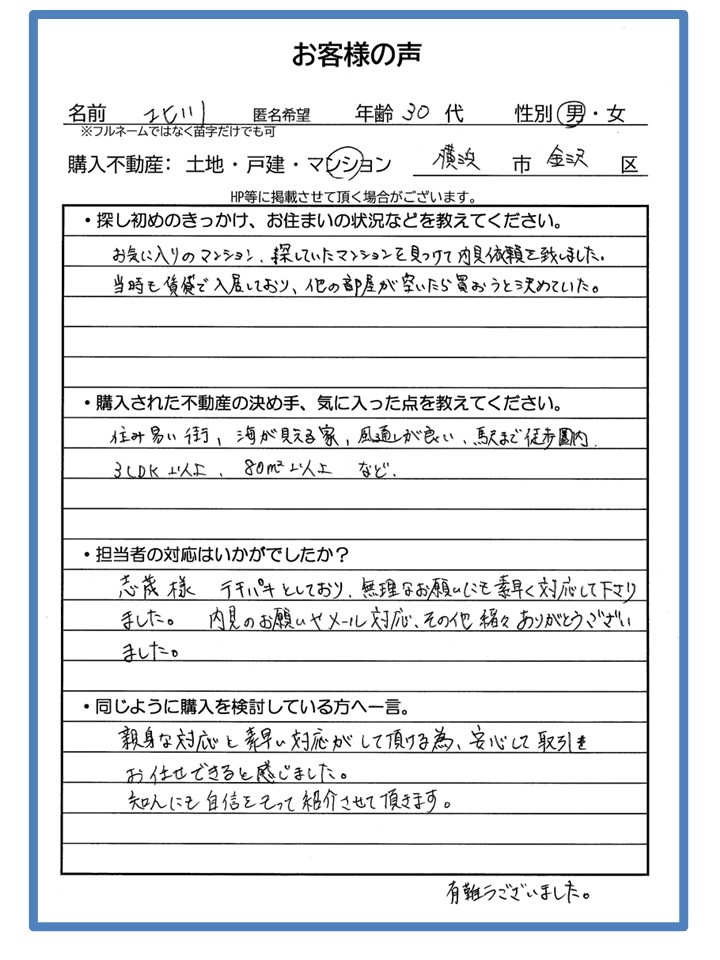 お客様の声
名前 北川 匿名希望 年齢 30 代 性別 男・女
※フルネームではなく苗字だけでも可
購入不動産: 土地・戸建・マンション 横浜 市 金沢 区
HP等に掲載させて頂く場合がございます。
・探し初めのきっかけ、お住まいの状況などを教えてください。
お気に入りのマンション、探していたマンションを見つけて内見依頼を致しました。
当時も賃貸で入居しており、他の部屋が空いたら買おうと決めていた。
・購入された不動産の決め手、気に入った点を教えてください。
住み易い街、海が見える家、風通しが良い、駅まで徒歩圏内、
3LDK以上、80m²以上 など、
・担当者の対応はいかがでしたか？
志歳様 テキパキとしており、無理なお願いにも素早く対応して下さり
ました。 内見のお願いやメール対応、その他 諸々 ありがとうござい
ました。
・同じように購入を検討している方へ一言。
親身な対応と素早い対応がして頂ける為、安心して取引を
お任せできると感じました。
知人にも自信をもって紹介させて頂きます。
有難うございました。